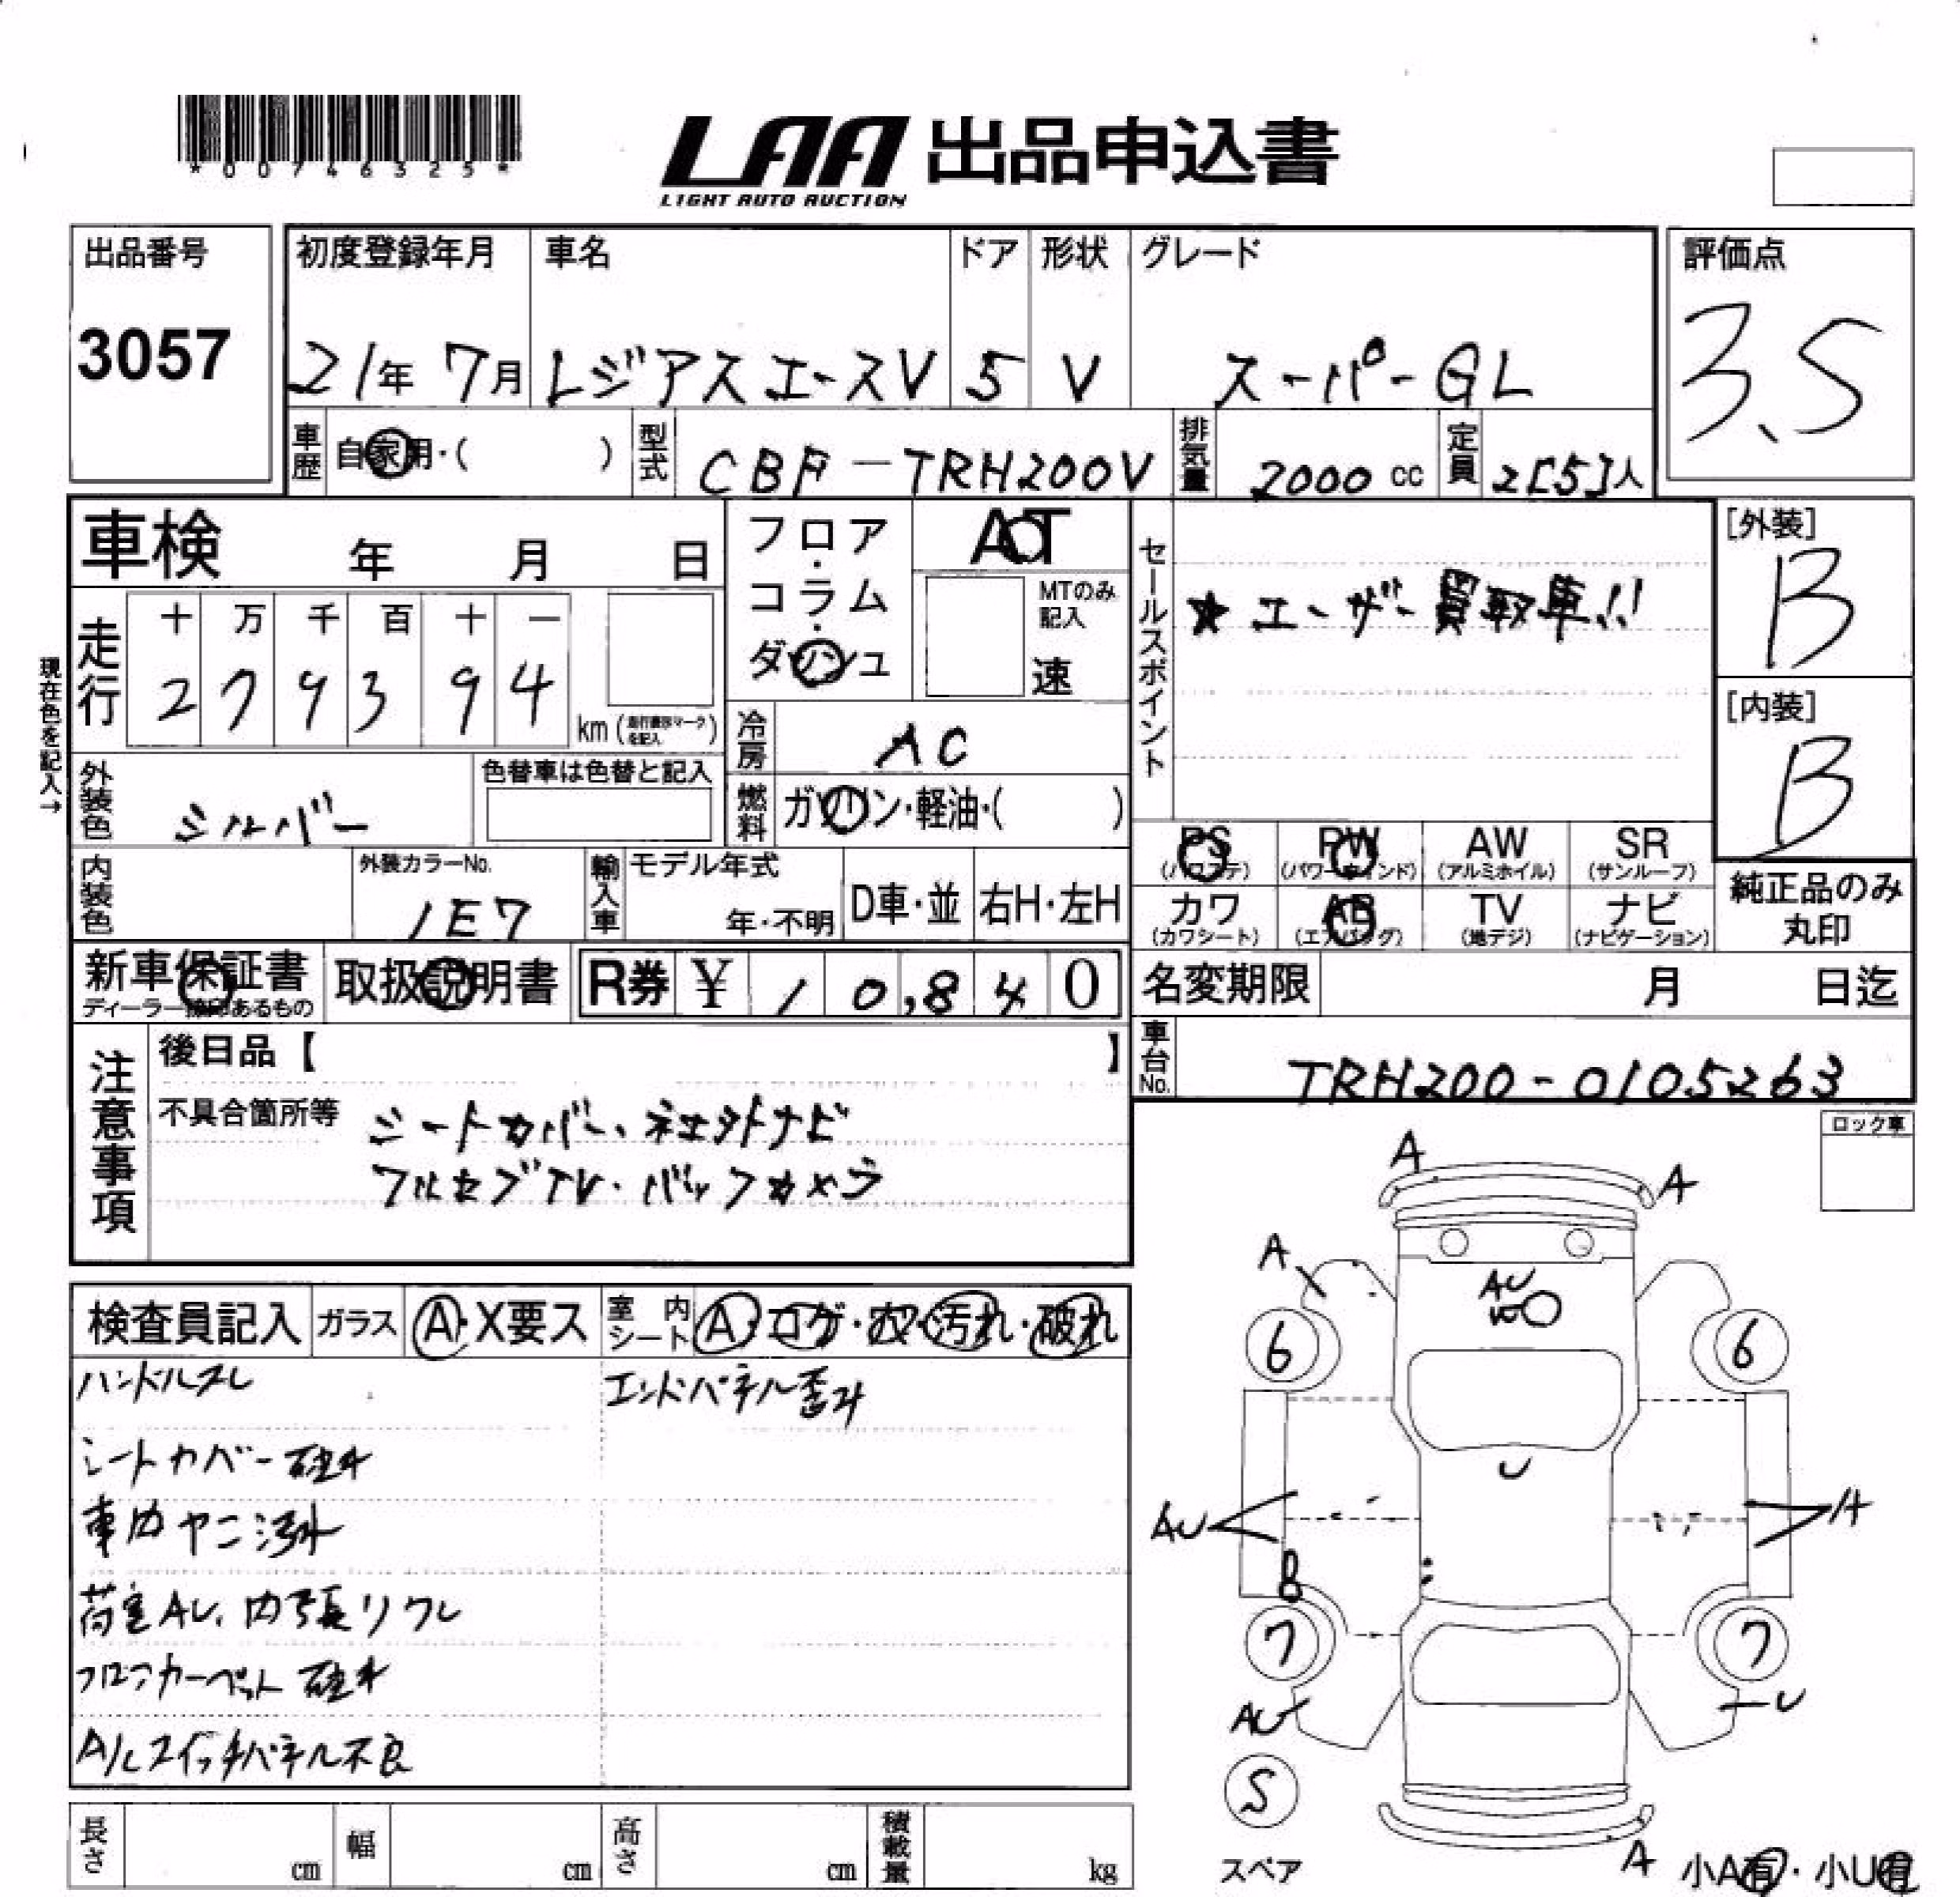 *00746325*
LAA 出品申込書
LIGHT AUTO AUCTION
出品番号
3057
初度登録年月
21年 7月
車名
レジアスエースV
ドア
5
形状
V
グレード
スーパーGL
評価点
3.5
車歴
自家用・( )
型式
CBF-TRH200V
排気量
2000 cc
定員
2[5]人
車検 年 月 日
現在色を記入→
走行
十 万 千 百 十 一
2 7 9 3 9 4
km (走行書換マークを記入)
フロア・コラム・ダッシュ
AT
MTのみ
記入
速
冷房
AC
燃料
ガソリン・軽油・( )
セールスポイント
★エーザー買取車!!
[外装]
B
[内装]
B
外装色
シルバー
色替車は色替と記入
内装色
外装カラーNo.
1E7
輸入車
モデル年式
年・不明
D車・並
右H・左H
PS
(パワステ)
PW
(パワーウインド)
AW
(アルミホイル)
SR
(サンルーフ)
カワ
(カワシート)
AB
(エアバッグ)
TV
(地デジ)
ナビ
(ナビゲーション)
純正品のみ
丸印
新車保証書
ディーラー捺印あるもの
取扱説明書
R券 ¥ 10,840
名変期限 月 日迄
車台No.
TRH200-0105263
注意事項
後日品【 】
不具合箇所等
シートカバー、社外ナビ
フルセグTV・バックカメラ
ロック車
検査員記入
ガラス
A・X要ス
室内
シート
A・コゲ・穴・汚れ・破れ
ハンドルスレ
エンドパネル歪み
シートカバー破れ
車内ヤニ汚れ
荷室AU、内張りワレ
フロアカーペット破れ
A/Cスイッチパネル不良
A
A
A
AU
6
6
U
AU
A
B
7
7
AU
U
S
スペア
A
小A有・小U有
長さ cm
幅 cm
高さ cm
積載量 kg